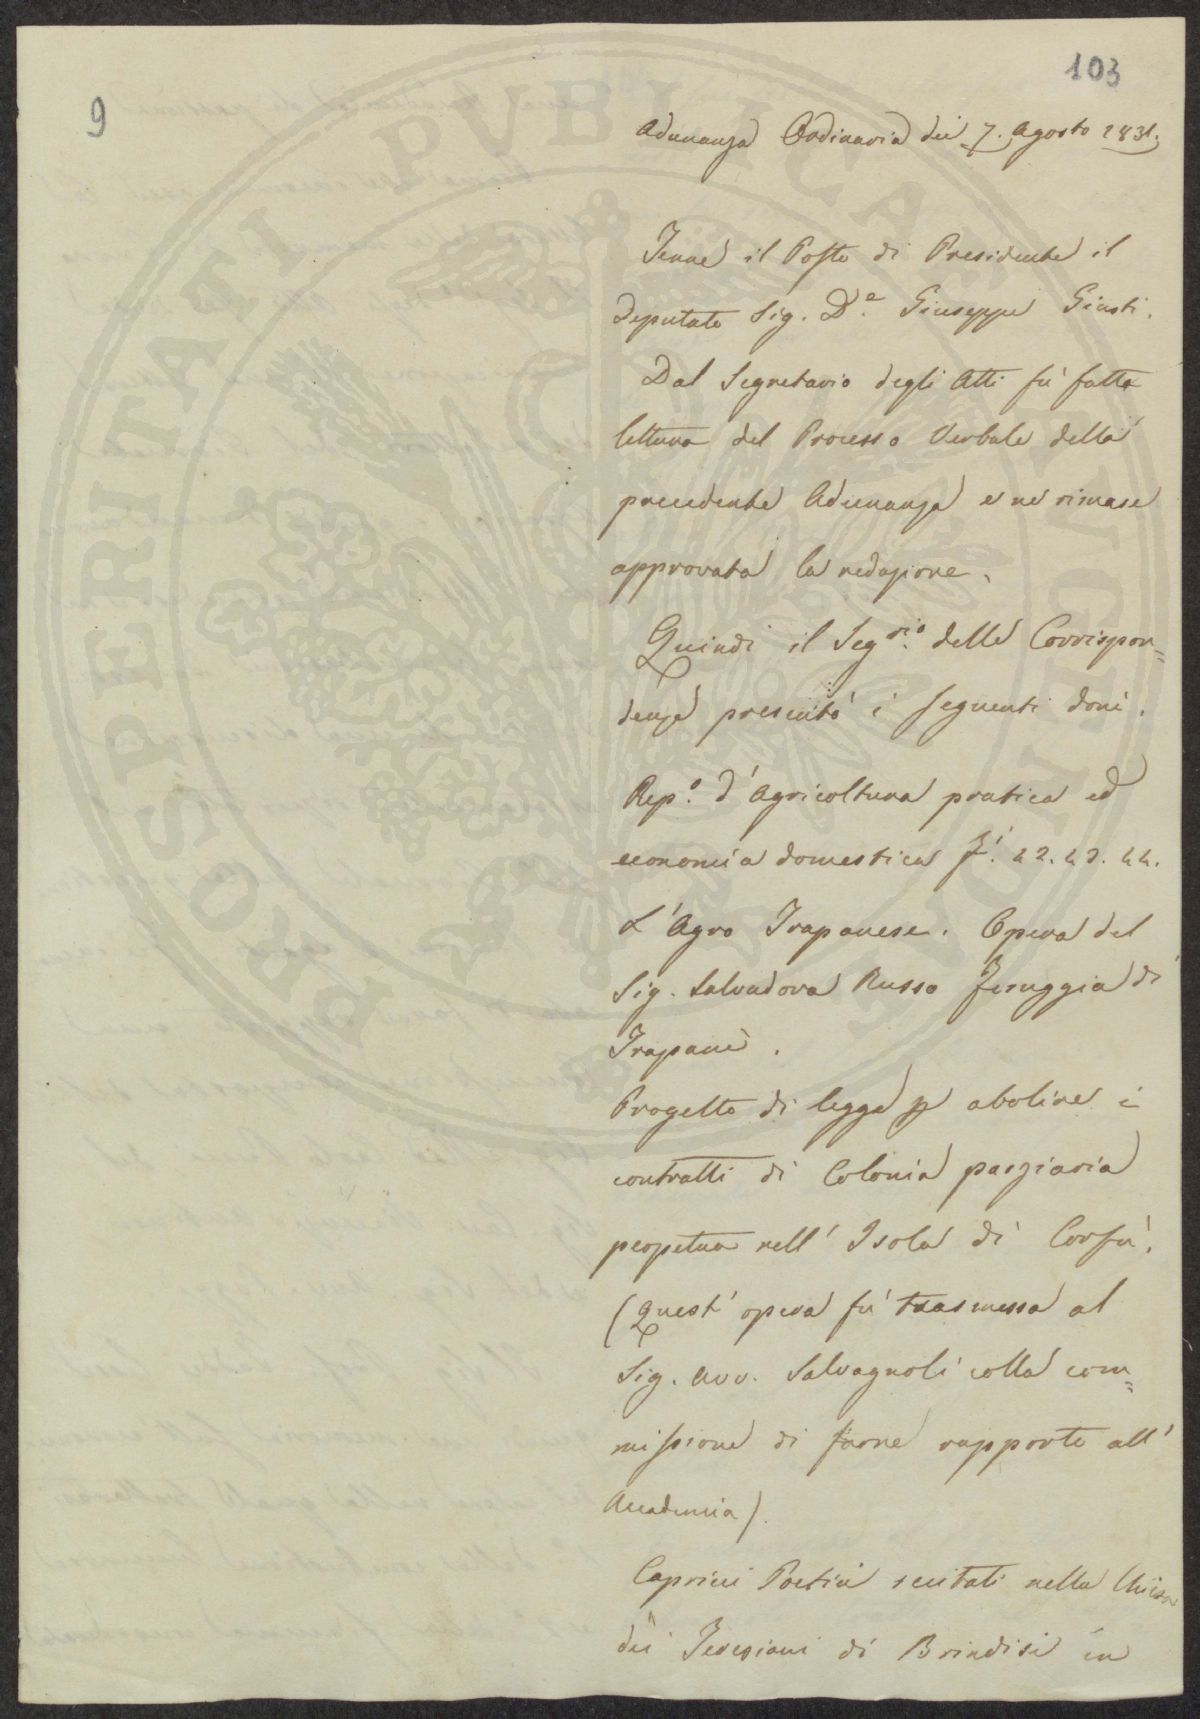 103
9
Adunanza Ordinaria dei 7. Agosto 1831.
Tenne il Posto di Presidente il
Deputato Sig. D.e Giuseppe Giusti.
Dal Segretario degli Atti fù fatta
lettura del Processo Verbale della
precedente Adunanza e ne rimase
approvata la redazione.
Quindi il Seg.rio delle Corrispon=
denze presentò i seguenti doni.
Rep.o d'Agricoltura pratica ed
economia domestica F.i 42. 43. 44.
L'Agro Trapanese. Opera del
Sig. Salvadora Russo Feruggia di
Trapani.
Progetto di legge p abolire i
contratti di Colonia parziaria
perpetua nell' Isola di Corfù.
(Quest' opera fù trasmessa al
Sig. Avv. Salvagnoli colla com=
missione di farne rapporto all'
Accademia).
Caprici Poetici recitati nella Chiesa
dei Teresiani di Brindisi in
PROSPERITATI PUBLICAE AUGENDAE